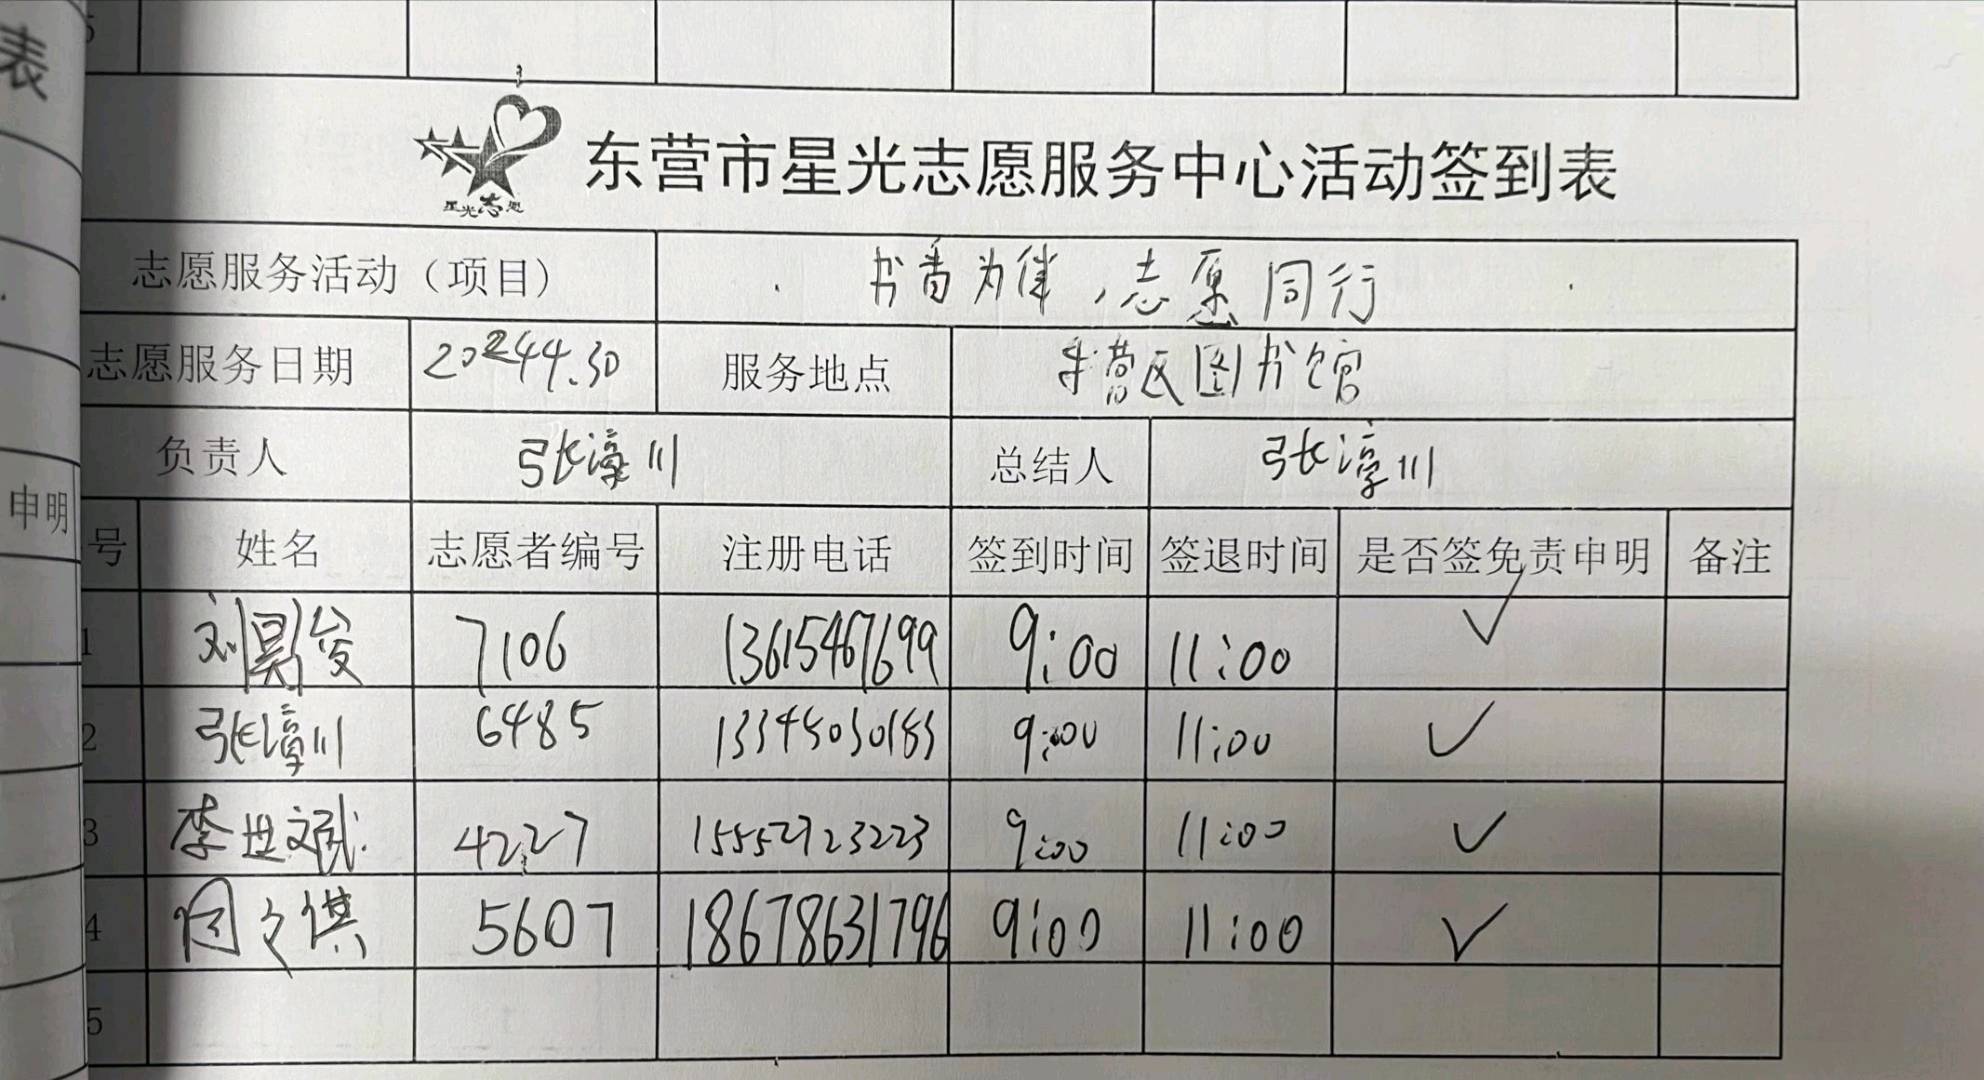 表
申明
5
星光志愿
东营市星光志愿服务中心活动签到表
志愿服务活动（项目） 书香为伴，志愿同行
志愿服务日期 2024.4.30 服务地点 东营区图书馆
负责人 张淳川 总结人 张淳川
号 姓名 志愿者编号 注册电话 签到时间 签退时间 是否签免责申明 备注
1 刘昊俊 7106 13615467699 9:00 11:00 ✓
2 张淳川 6485 9:00 11:00 ✓
3 李世文斌 4227 15552723223 9:00 11:00 ✓
4 5607 18678631796 9:00 11:00 ✓
5